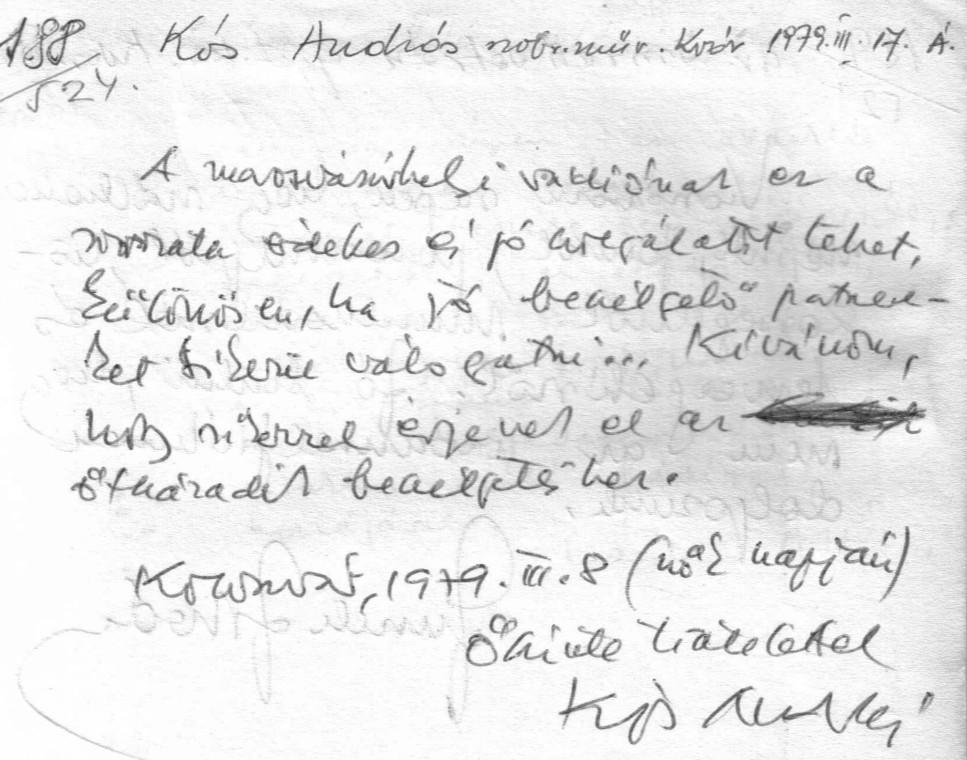 188
524.
Kós András szobr.műv. Kvár 1979.III.17. Á.
A marosvásárhelyi rádiónak ez a
sorozata érdekes és jó szolgálatot tehet,
különösen, ha jó beszélgető partnere-
ket sikerül válogatni... Kívánom,
hogy sikerrel érjenek el az
ötszázadik beszélgetéshez.
Kolozsvár, 1979.III.8 (nők napján)
Őszinte tisztelettel
Kós András